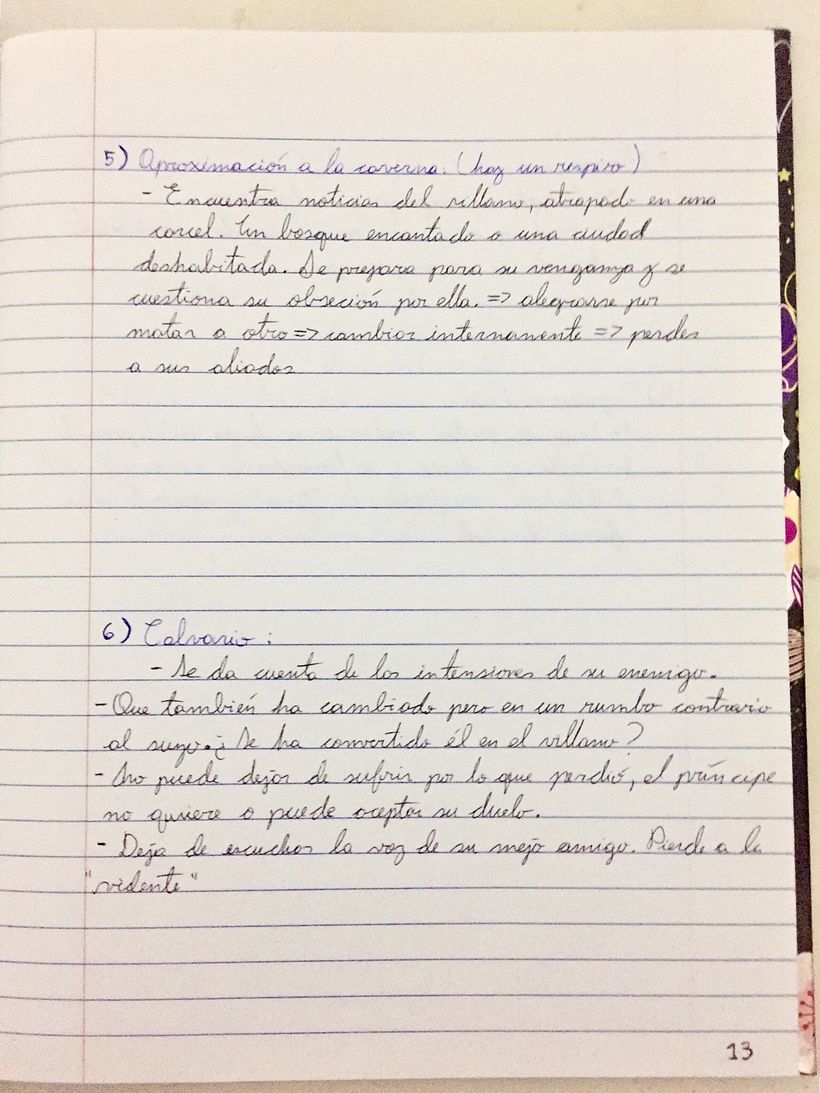 5) Aproximación a la caverna: (haz un respiro)
- Encuentra noticias del villano, atrapado en una
carcel. Un bosque encantado o una ciudad
deshabitada. Se prepara para su venganza y se
cuestiona su obseción por ella. => alegrarse por
matar a otro => cambiar internamente => perder
a sus aliados
6) Calvario:
- Se da cuenta de las intensiones de su enemigo.
- Que también ha cambiado pero en un rumbo contrario
al suyo. ¿Se ha convertido él en el villano?
- No puede dejar de sufrir por lo que perdió, el príncipe
no quiere o puede aceptar su duelo.
- Deja de escuchar la voz de su mejo amigo. Pierde a la
"vidente"
13